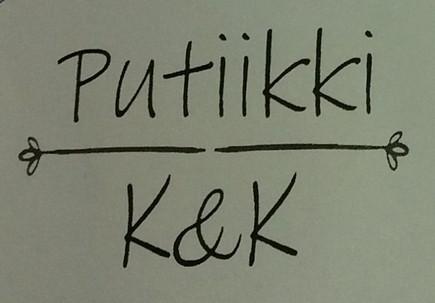 Putiikki
K&K